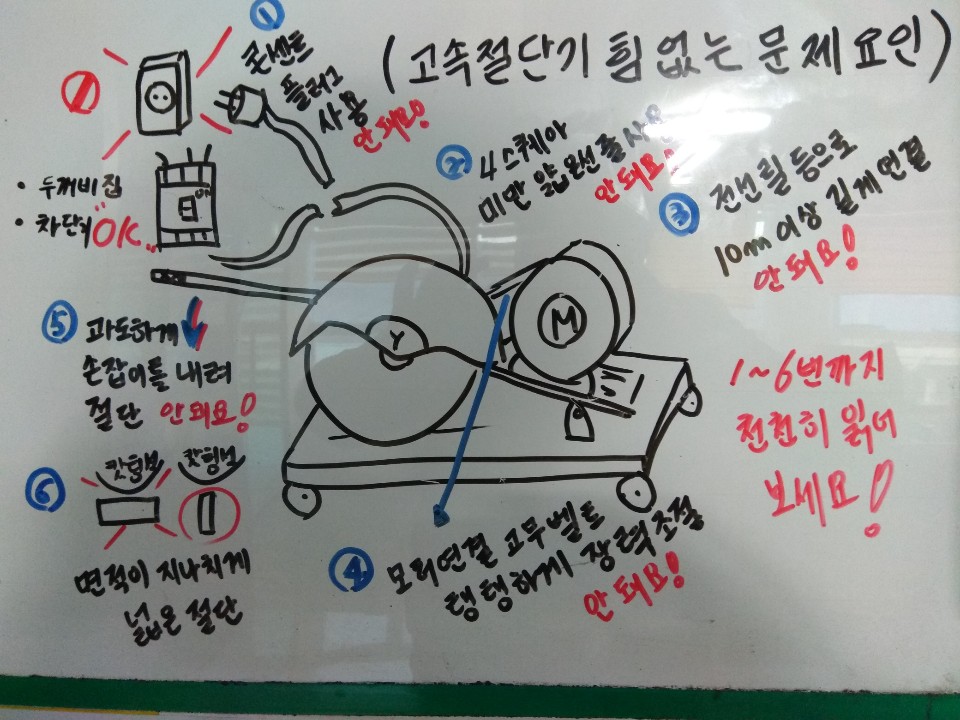 (고속절단기 힘없는 문제요인)
①
콘센트
플러그
사용
안돼요!
· 두꺼비집
· 차단기 "OK"
ON
②
4스퀘아
미만 얇은선줄사용
안돼요!
③
전선릴등으로
10m이상 길게연결
안돼요!
M
⑤
과도하게
손잡이를 내려
절단 안돼요!
⑥
컷팅날 컷팅날
면적이 지나치게
넓은 절단
④
모터연결 고무벨트
탱탱하게 장력조절
안돼요!
1~6번까지
천천히 읽어
보세요!